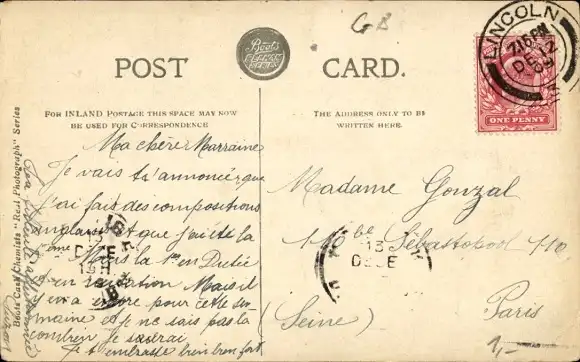 GB
POST CARD.
Boots
LINCOLN
7.15 PM
DE 12
09
ONE PENNY
FOR INLAND POSTAGE THIS SPACE MAY NOW
BE USED FOR CORRESPONDENCE
THE ADDRESS ONLY TO BE
WRITTEN HERE.
Boots Cash Chemists "Real Photograph" Series
Ma chère Marraine
Je vais t'annoncer que
j'ai fait des compositions
que j'ai été la
mais la 1re en Dictée
et en récitation Mais il
y en a encore pour cette se
maine et je ne sais pas la
combien je serai
Je t'embrasse bien bien fort
Madame Gonzal
110 be Sébastopol 110
Paris
(Seine)
13
DÉCE